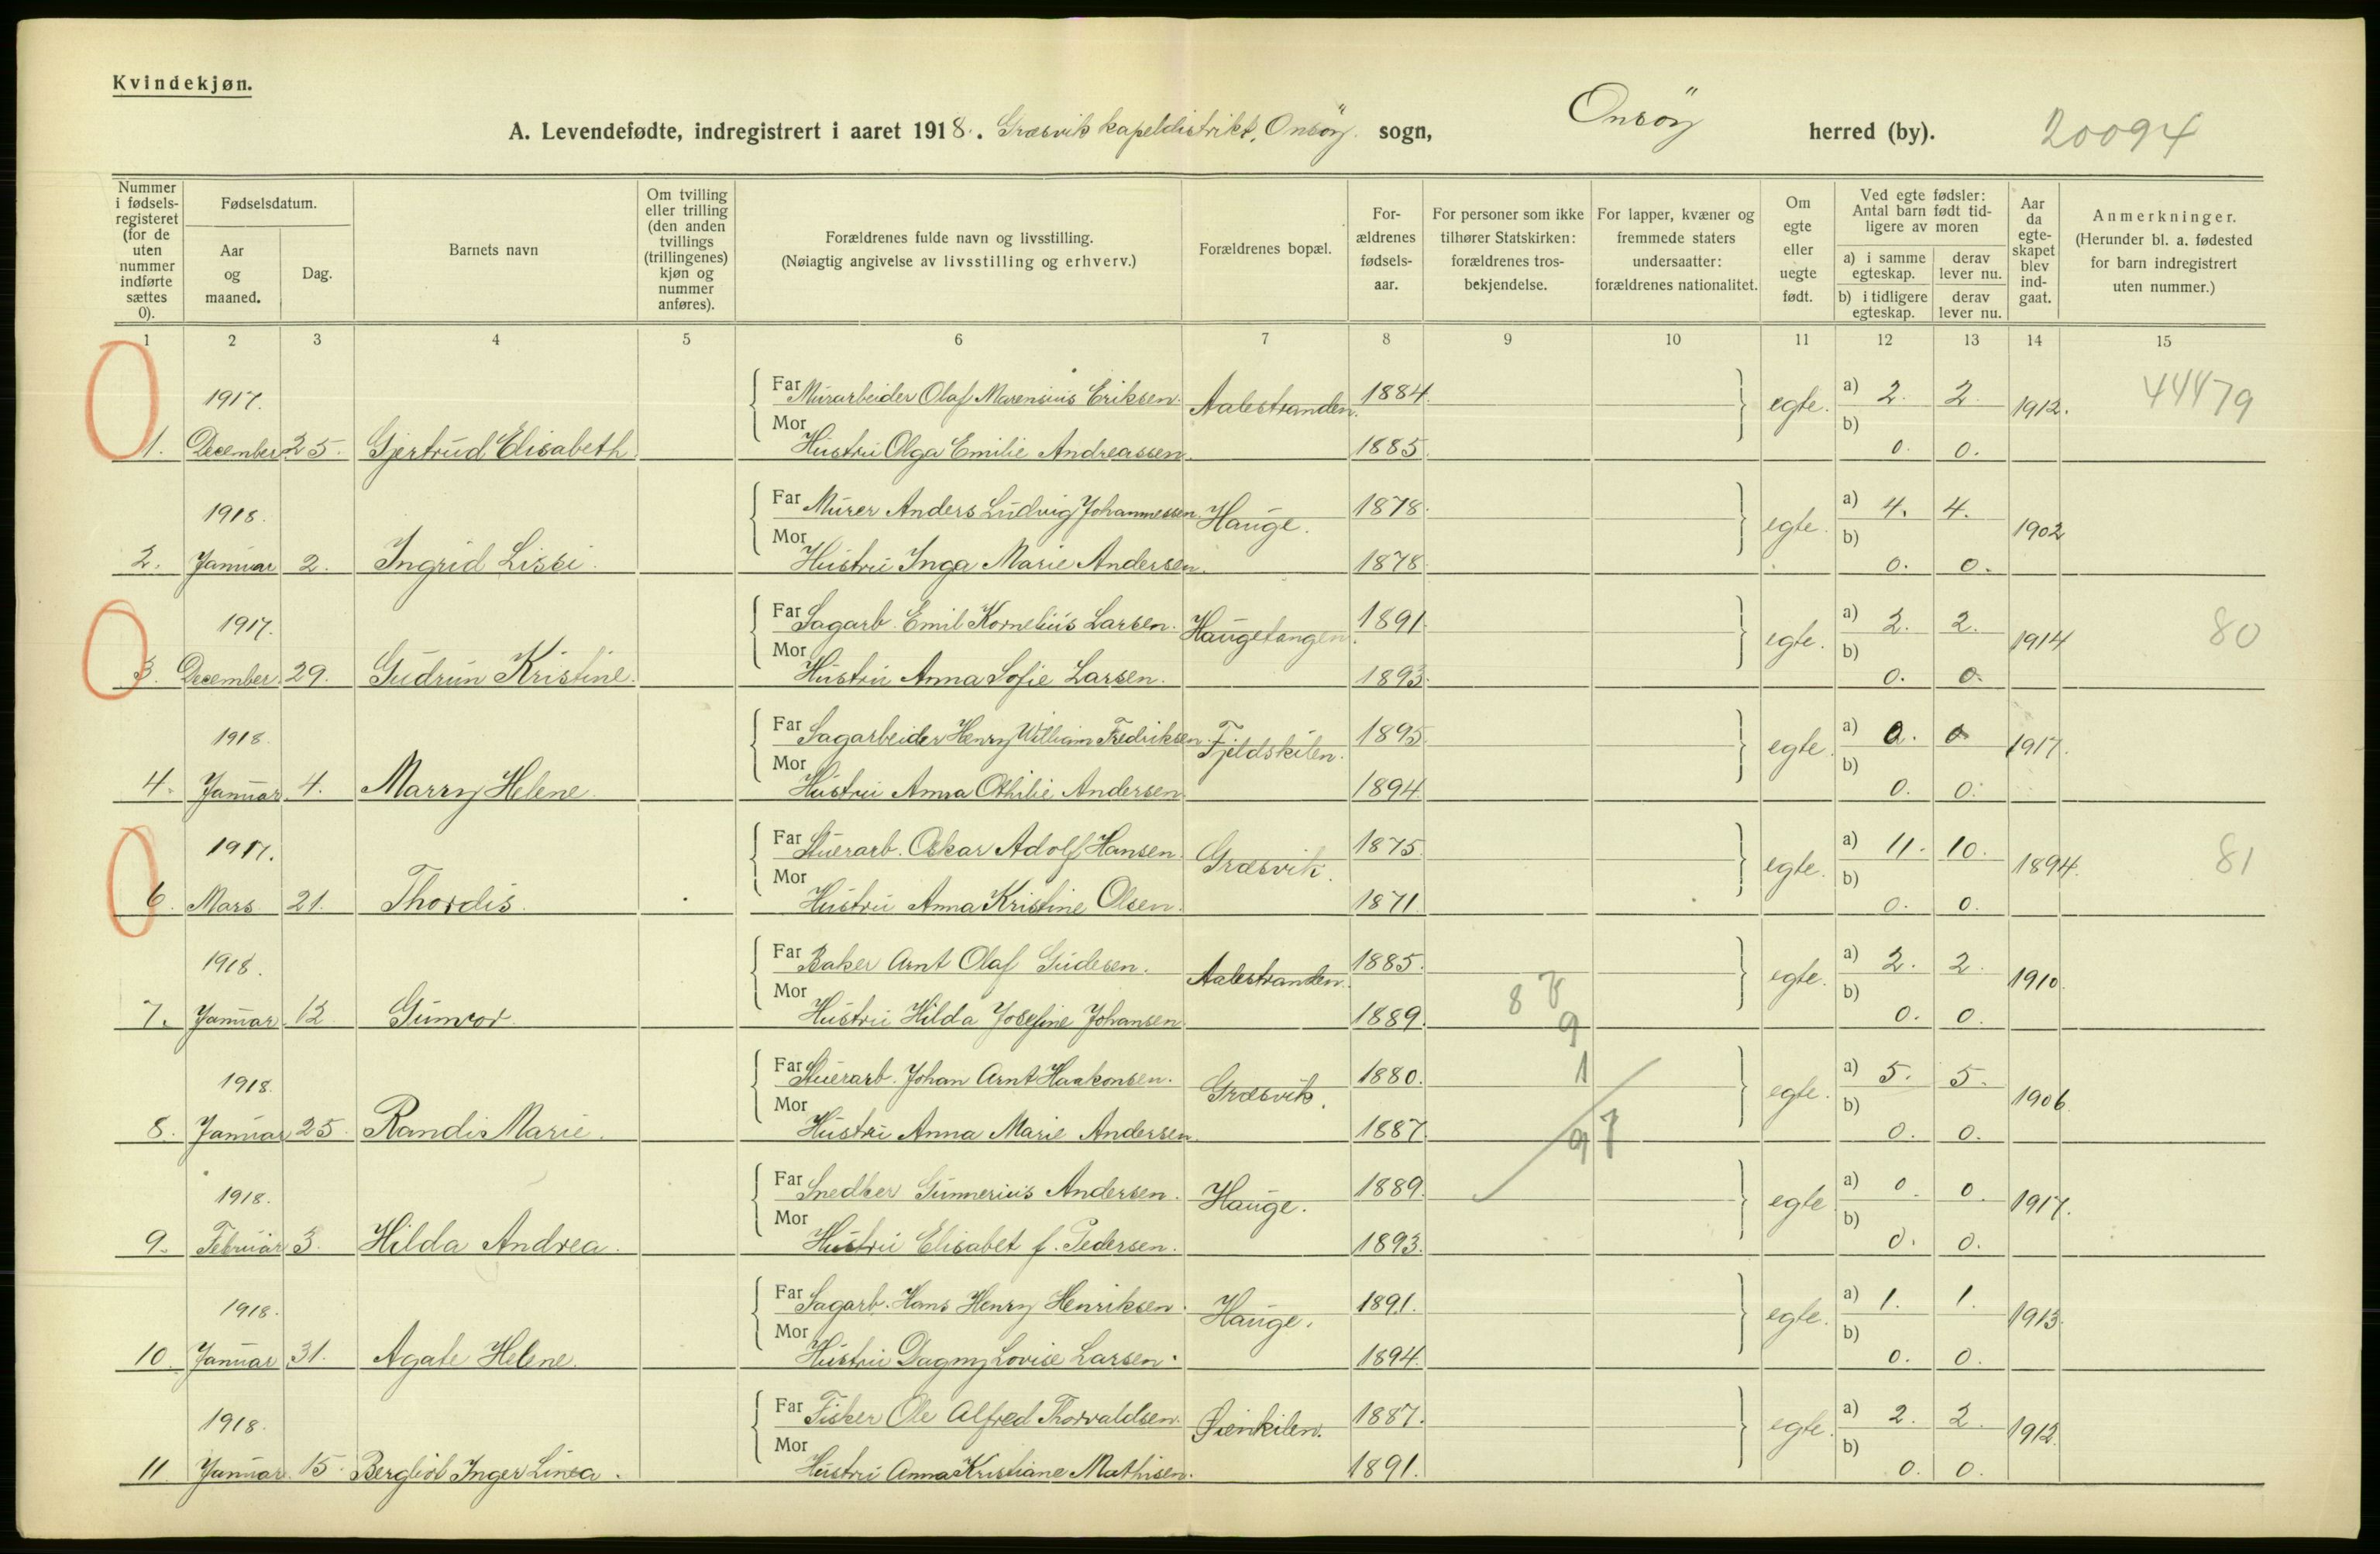 Kvindekjøn.
A. Levendefødte, indregistrert i aaret 1918. Græsvik kapeldistrikt, Onsöy sogn, Onsöy herred (by). 20094
Nummer i fødselsregisteret (for de uten nummer indførte sættes 0).
Fødselsdatum.
Aar og maaned.
Dag.
Barnets navn
Om tvilling eller trilling (den anden tvillings (trillingenes) kjøn og nummer anføres).
Forældrenes fulde navn og livsstilling.
(Nøiagtig angivelse av livsstilling og erhverv.)
Forældrenes bopæl.
Forældrenes fødselsaar.
For personer som ikke tilhører Statskirken: forældrenes trosbekjendelse.
For lapper, kvæner og fremmede staters undersaatter: forældrenes nationalitet.
Om egte eller uegte født.
Ved egte fødsler: Antal barn født tidligere av moren
a) i samme egteskap.
derav lever nu.
b) i tidligere egteskap.
derav lever nu.
Aar da egteskapet blev indgaat.
Anmerkninger.
(Herunder bl. a. fødested for barn indregistrert uten nummer.)
1 2 3 4 5 6 7 8 9 10 11 12 13 14 15
1917. Far Murarbeider Olaf Marensius Eriksen. Aalestranden. 1884. egte. a) 2. 2. 1912. 44479
1. December 25. Gjertrud Elisabeth Mor Hustru Olga Emilie Andreassen. 1885. b) 0. 0.
1918. Far Murer Anders Ludvig Johannessen. Hauge. 1878. egte. a) 4. 4. 1902
2. Januar 2. Ingrid Lissi. Mor Hustru Inga Marie Andersen. 1878 b) 0. 0.
1917. Far Sagarb. Emil Kornelius Larsen. Haugetangen. 1891. egte. a) 2. 2. 1914 80
3. December 29. Gudrun Kristine. Mor Hustru Anna Sofie Larsen. 1893. b) 0. 0.
1918. Far Sagarbeider Henry William Fredriksen. Fjeldskilen. 1895. egte. a) 0. 0 1917.
4. Januar 4. Marry Helene. Mor Hustru Anna Othilie Andersen 1894 b) 0. 0.
1917. Far Stuerarb. Oskar Adolf Hansen. Græsvik. 1875. egte. a) 11. 10. 1894. 81
6. Mars 21. Thordis. Mor Hustru Anna Kristine Olsen. 1871. b) 0. 0.
1918. Far Baker Arnt Olaf Gudesen. Aalestranden. 1885. egte. a) 2. 2. 1910.
7. Januar 12. Gunvor. Mor Hustru Hilda Josefine Johansen 1889. b) 0. 0.
1918. Far Stuerarb. Johan Arnt Haakonsen. Græsvik. 1880. egte. a) 5. 5. 1906
8. Januar 25. Randi Marie. Mor Hustru Anna Marie Andersen. 1887 b) 0. 0.
1918. Far Snedker Gunnerius Andersen. Hauge. 1889. egte a) 0. 0. 1917.
9. Februar 3. Hilda Andrea. Mor Hustru Elisabet f. Pedersen. 1893. b) 0. 0.
1918. Far Sagarb. Hans Henry Henriksen. Hauge. 1891. egte. a) 1. 1. 1913.
10. Januar 31. Agate Helene. Mor Hustru Dagny Lovise Larsen. 1894. b) 0. 0.
1918. Far Fisker Ole Alfred Thorvaldsen. Øienkilen. 1887. egte. a) 2. 2. 1912.
11. Januar 15. Bergliot Inger Linea. Mor Hustru Anna Kristiane Mathisen. 1891. b) 0. 0.